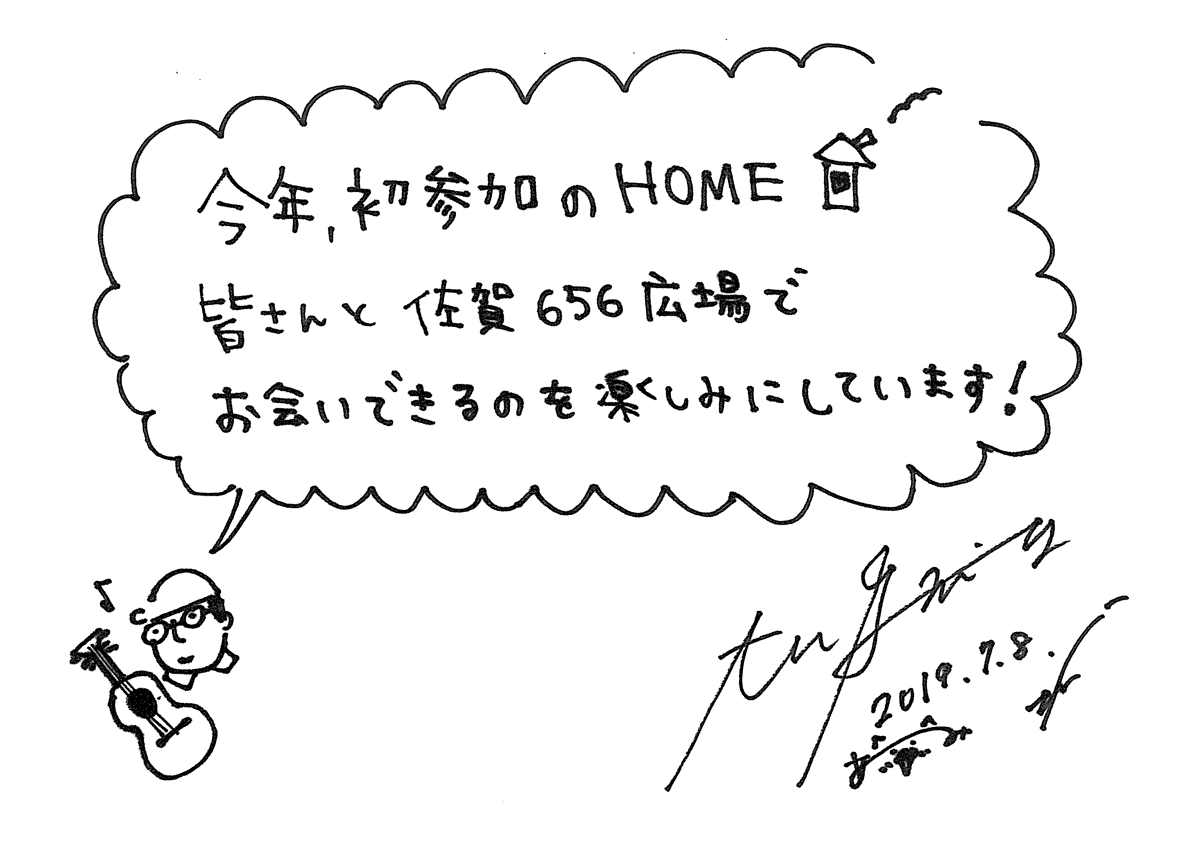 今年,初参加のHOME
皆さんと佐賀656広場で
お会いできるのを楽しみにしています!
2019.7.8.